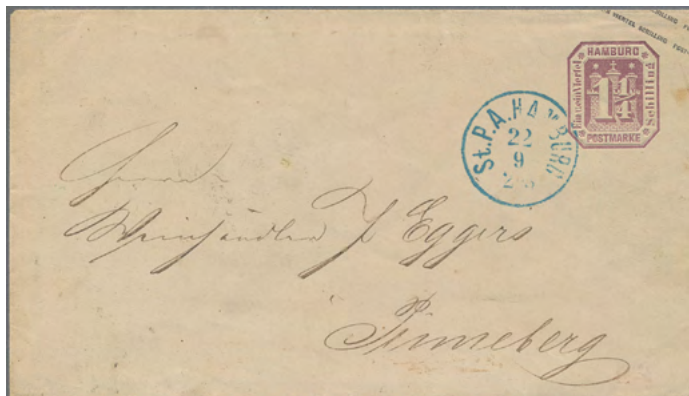 HAMBURG
Einundeinviertel
1 1/4
Schilling
POSTMARKE
St.P.A.HAMBURG
22
9
Herrn
Weinhändler J Eggers
Pinneberg